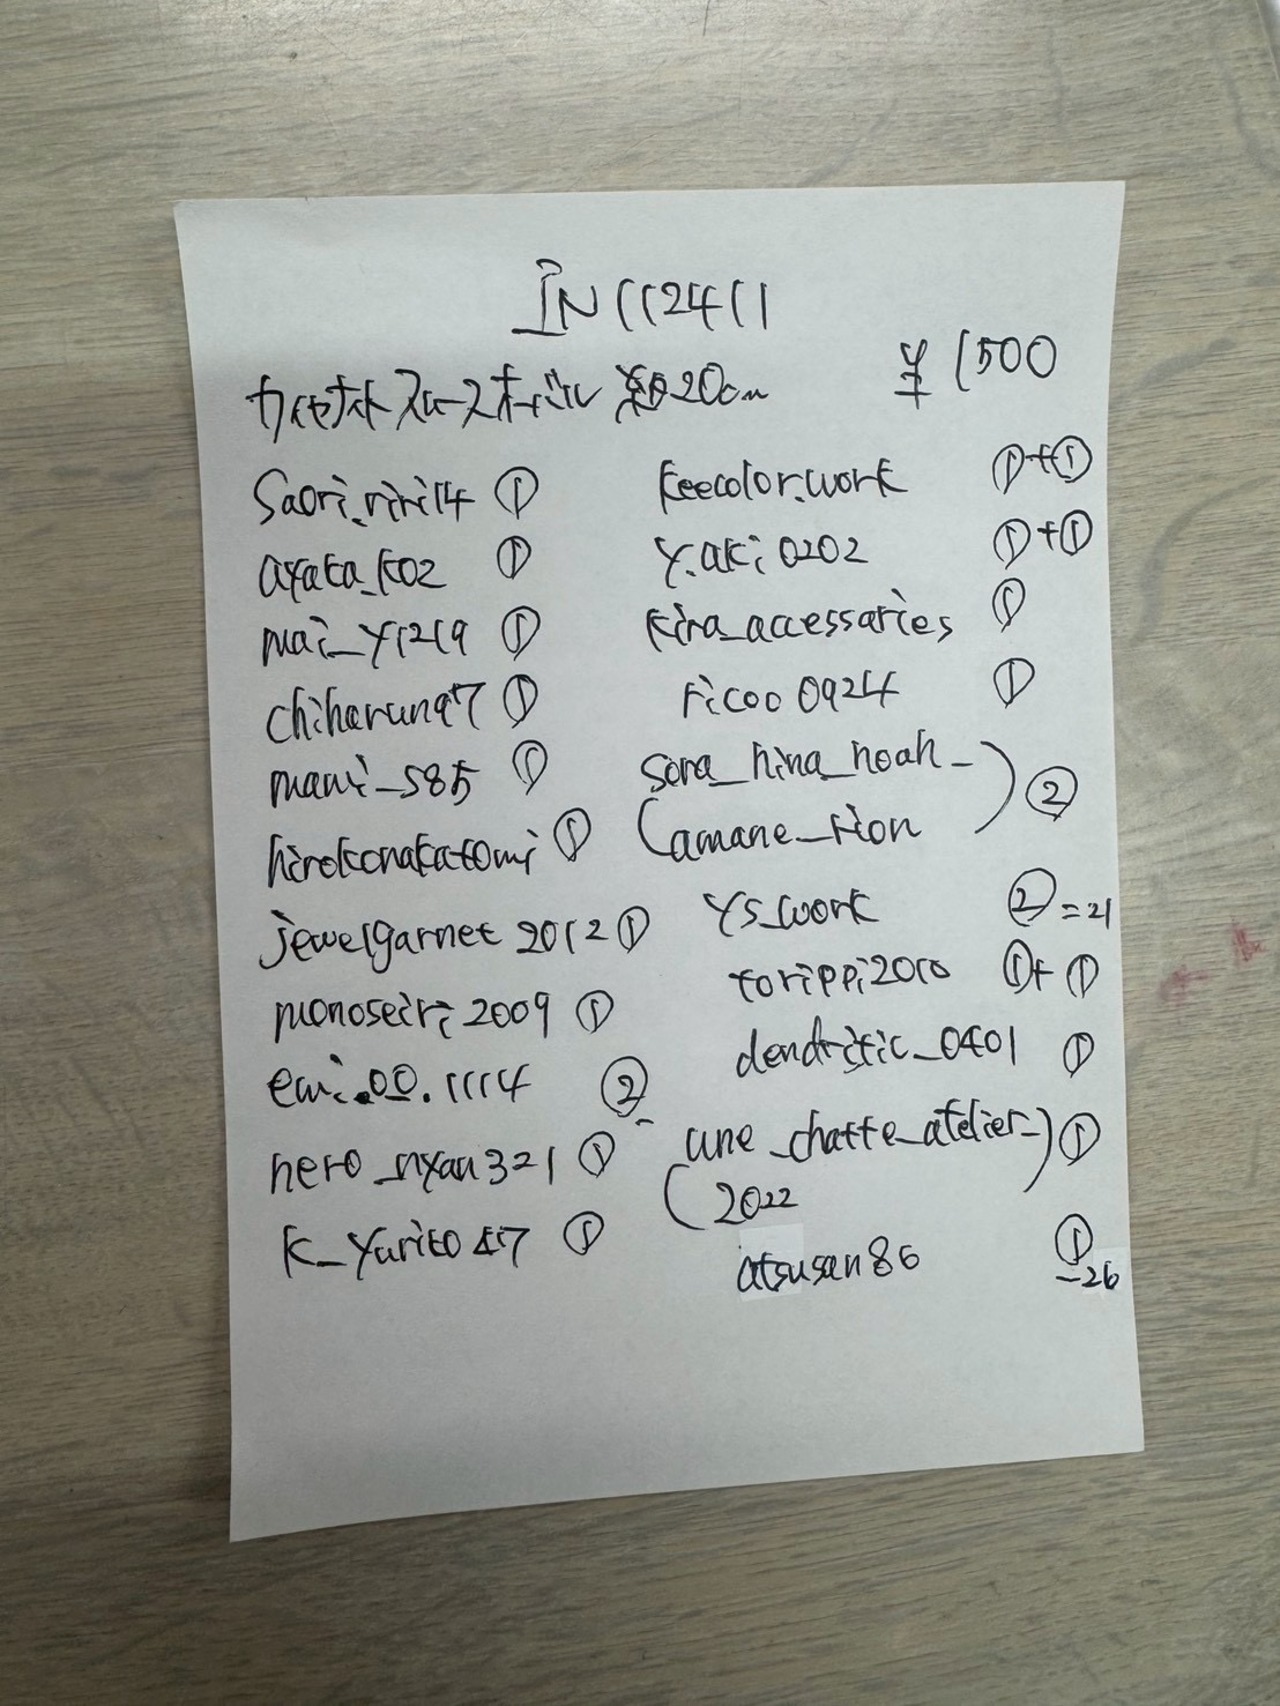 IN112411
¥1500
カイヤナイトスムースオーバル 約20cm
saori.riri14 ①
ayaka_k02 ①
mai_y1219 ①
chiharun97 ①
mami_585 ①
hirokonakatomi ①
jewelgarnet2012 ①
monoseiri2009 ①
emi.00.1114 ②
nero_nyan321 ①
k_yurito47 ①
keecolor.work ①+①
y.aki0202 ①+①
kira_accessaries ①
ricoo0924 ①
sora_hina_noah_
(amane_rion) ②
ys_work ②=21
torippi2010 ①+①
dendritic_0401 ①
(une_chatte_atelier_) ①
2022
atsusan86 ①
-26